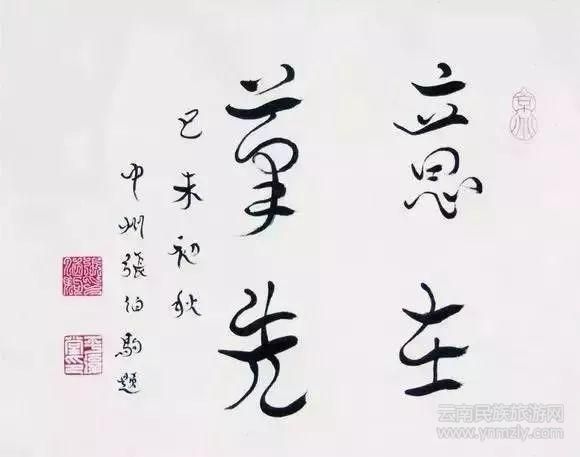 意在
筆先
己未初秋
中州張伯駒題
云南民族旅游网
www.ynmzly.com